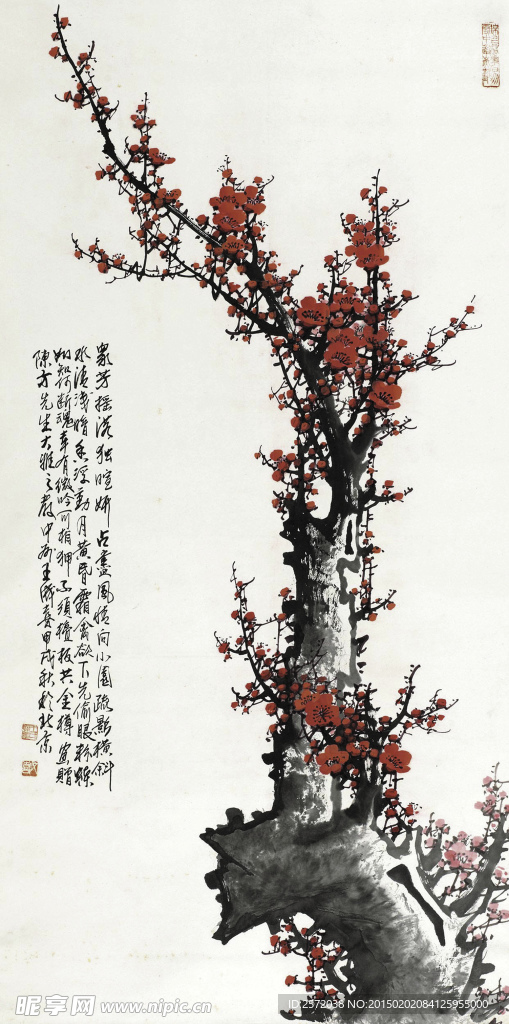 众芳摇落独暄妍占尽风情向小园疏影横斜
水清浅暗香浮动月黄昏霜禽欲下先偷眼粉蝶
如知合断魂幸有微吟可相狎不须檀板共金樽写赠
陈方先生大雅之教中州王成喜甲戌秋于北京
昵享网 www.nipic.cn
ID:2572038 NO:20150202084125955000